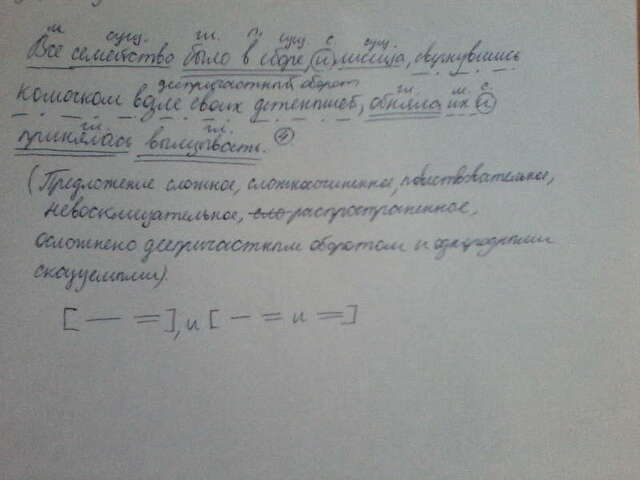 м. сущ. гл. п. сущ. с. сущ.
Все семейство было в сборе и лисица, свернувшись
деепричастный оборот гл. м. с.
комочком возле своих детенышей, обняла их и
гл. гл.
принялась вылизывать. ④
(Предложение сложное, сложносочиненное, повествовательное,
невосклицательное, распространенное,
осложнено деепричастным оборотом и однородными
сказуемыми).
[— =], и [— = и =]